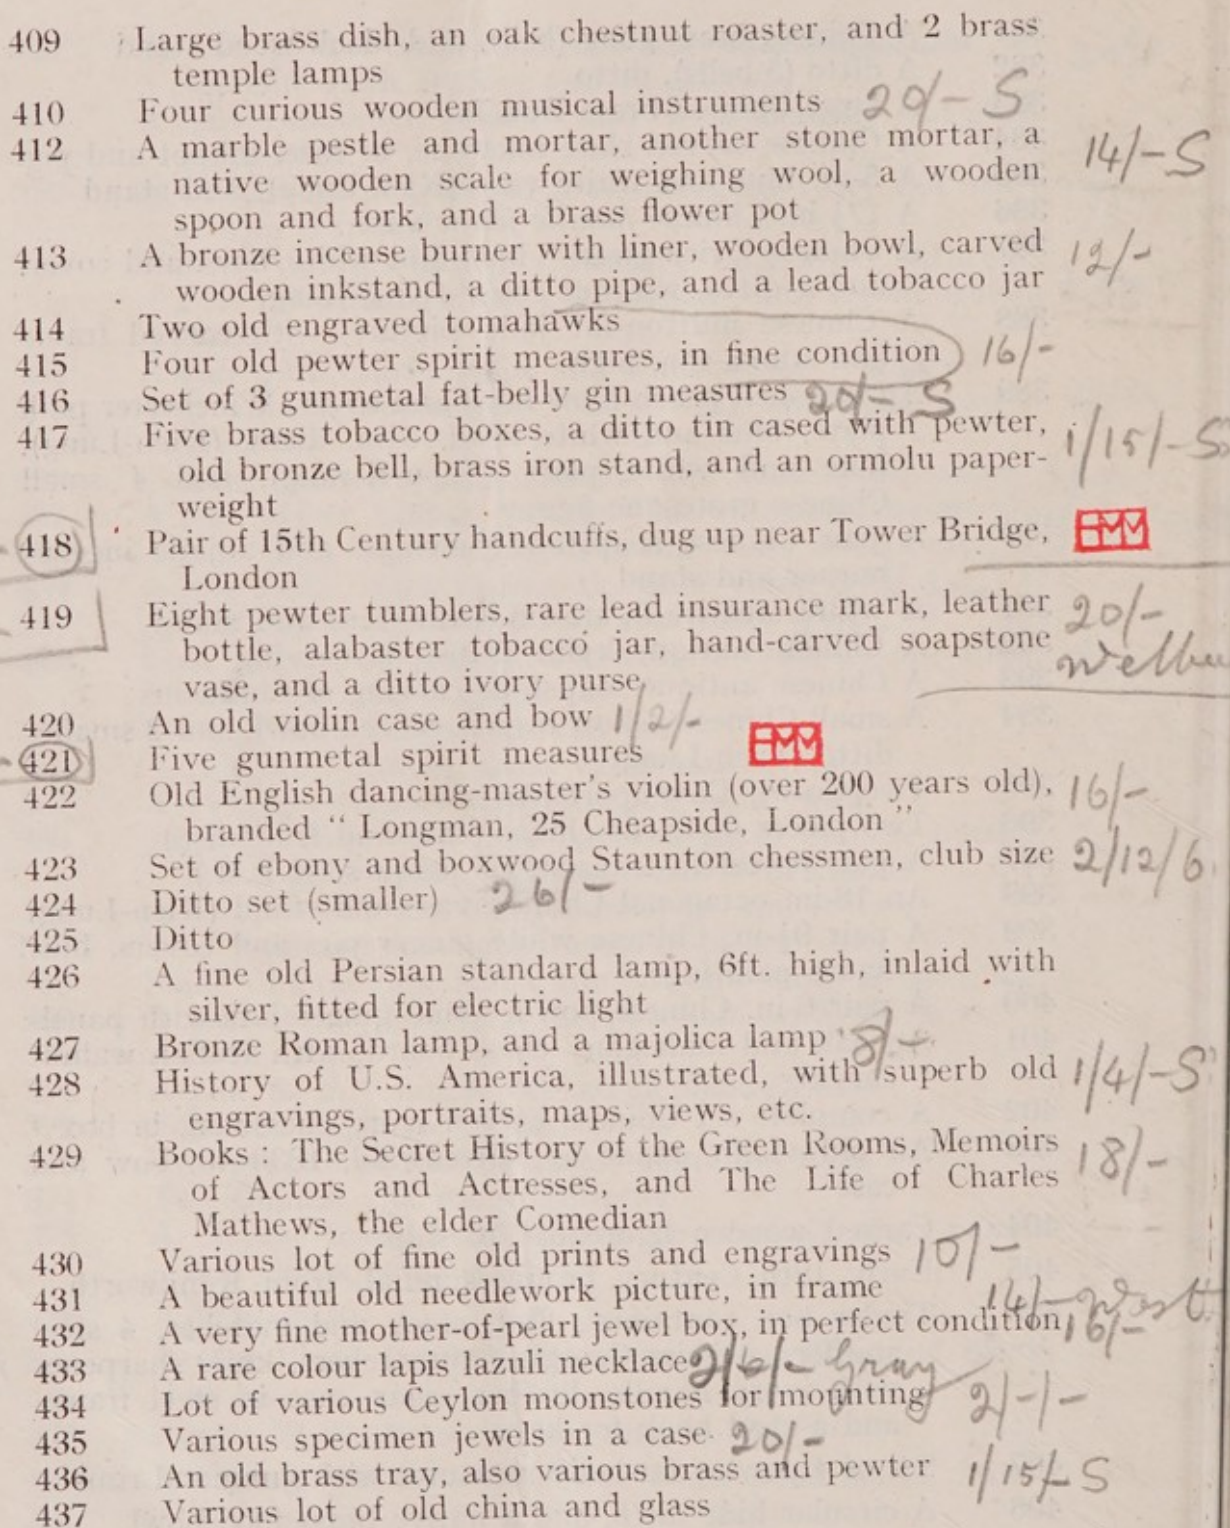 409 Large brass dish, an oak chestnut roaster, and 2 brass
temple lamps
410 Four curious wooden musical instruments 20/- S
412 A marble pestle and mortar, another stone mortar, a 14/- S
native wooden scale for weighing wool, a wooden
spoon and fork, and a brass flower pot
413 A bronze incense burner with liner, wooden bowl, carved 12/-
wooden inkstand, a ditto pipe, and a lead tobacco jar
414 Two old engraved tomahawks
415 Four old pewter spirit measures, in fine condition 16/-
416 Set of 3 gunmetal fat-belly gin measures 20/- S
417 Five brass tobacco boxes, a ditto tin cased with pewter, 1/15/- S
old bronze bell, brass iron stand, and an ormolu paper-
weight
418 Pair of 15th Century handcuffs, dug up near Tower Bridge,
London
419 Eight pewter tumblers, rare lead insurance mark, leather 20/-
bottle, alabaster tobacco jar, hand-carved soapstone
vase, and a ditto ivory purse
420 An old violin case and bow 1/2/-
421 Five gunmetal spirit measures
422 Old English dancing-master's violin (over 200 years old), 16/-
branded " Longman, 25 Cheapside, London "
423 Set of ebony and boxwood Staunton chessmen, club size 2/12/6
424 Ditto set (smaller) 26/-
425 Ditto
426 A fine old Persian standard lamp, 6ft. high, inlaid with
silver, fitted for electric light
427 Bronze Roman lamp, and a majolica lamp 8/-
428 History of U.S. America, illustrated, with superb old 1/4/- S
engravings, portraits, maps, views, etc.
429 Books : The Secret History of the Green Rooms, Memoirs 18/-
of Actors and Actresses, and The Life of Charles
Mathews, the elder Comedian
430 Various lot of fine old prints and engravings 10/-
431 A beautiful old needlework picture, in frame 14/- West
432 A very fine mother-of-pearl jewel box, in perfect condition 16/-
433 A rare colour lapis lazuli necklace 2/6/- Gray
434 Lot of various Ceylon moonstones for mounting 2/-/-
435 Various specimen jewels in a case 20/-
436 An old brass tray, also various brass and pewter 1/15/- S
437 Various lot of old china and glass